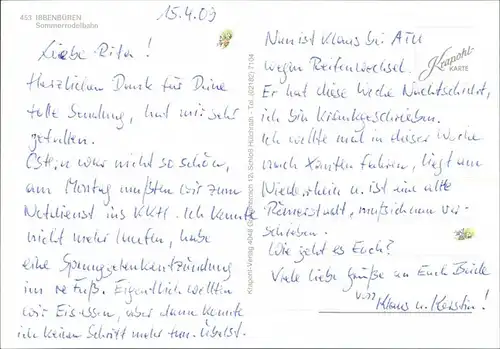 453 IBBENBÜREN
Sommerrodelbahn
15.4.03
Liebe Rita!
Herzlichen Dank für Deine
tolle Sendung, hat mir sehr
gefallen.
Ostern war nicht so schön,
am Montag mußten wir zum
Notdienst ins KKH. Ich konnte
nicht mehr laufen, habe
eine Sprunggelenkentzündung
im re Fuß. Eigentlich wollten
wir Eis essen, aber dann konnte
ich keinen Schritt mehr tun. Übelst.
Krapohl-Verlag 4048 Grevenbroich 12, Schloß Hülchrath - Tel. (02182) 7104
Nun ist Klaus bei ATU
wegen Reifenwechsel.
Er hat diese Woche Nachtschicht,
ich bin krankgeschrieben.
Ich wollte mal in dieser Woche
nach Xanten fahren, liegt am
Niederrhein u. ist eine alte
Römerstadt, muß ich nun ver-
schieben.
Wie geht es Euch?
Viele liebe Grüße an Euch Beide
v.
Klaus u. Kerstin!
Krapohl-
KARTE